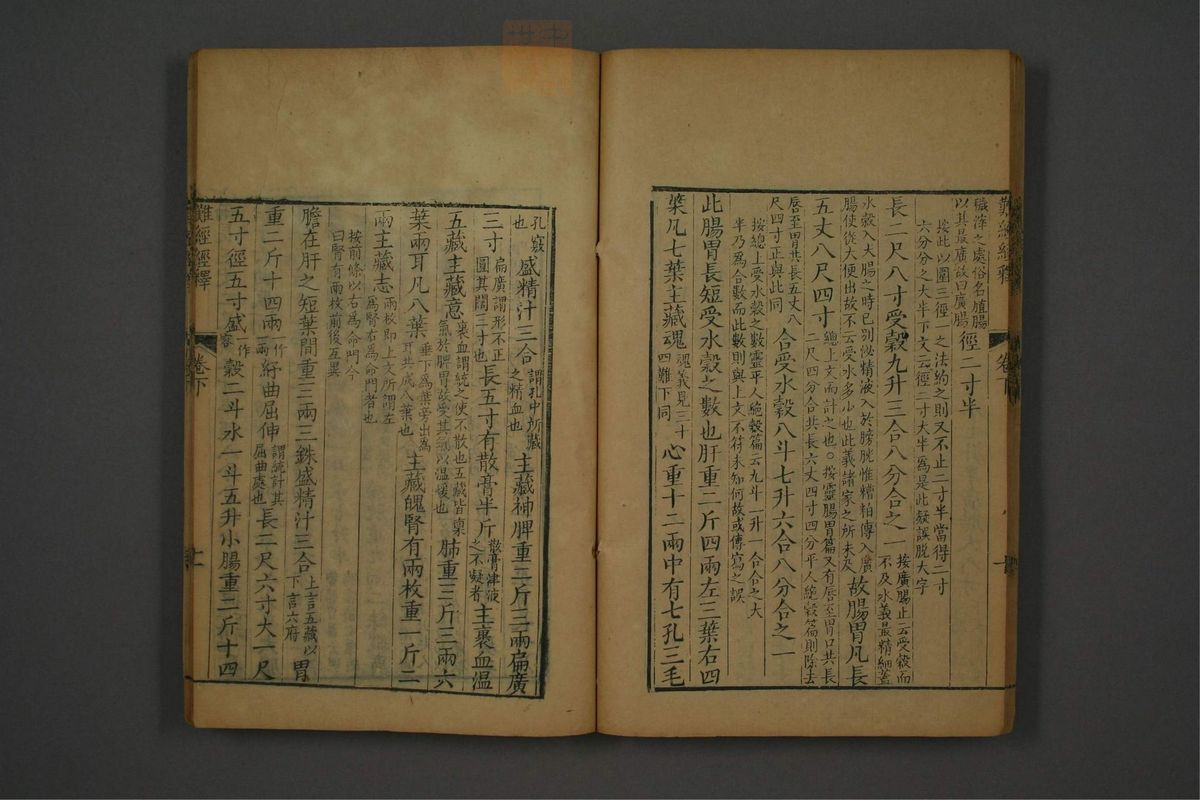 難經經釋
卷下
臟滓之處俗名䐈腸
以其最廣故曰廣腸
徑二寸半
按此以圍三徑一之法約之則又不止二寸半當得二寸
六分分之大半下文云徑二寸大半爲是此疑誤脫大字
長二尺八寸受穀九升三合八分合之一
按廣腸止云受穀而
不及水義最精細蓋
水穀入大腸之時已別泌精液入於膀胱惟糟粕傳入廣
腸使從大便出故不云受水多少也此義諸家之所未及
故腸胃凡長
五丈八尺四寸
總上文而計之也。按靈腸胃篇又有唇至胃口共長
二尺四分合共長六丈四寸四分平人絕穀篇則除去
唇至胃共長五丈八
尺四寸正與此同
合受水穀八斗七升六合八分合之一
按總上受水穀之數靈平人絕穀篇云九斗一升一合合之大
半乃爲合數而此數則與上文不符未知何故或傳寫之誤
此腸胃長短受水穀之數也肝重二斤四兩左三葉右四
葉凡七葉主藏魂
魂義見三十
四難下同
心重十二兩中有七孔三毛
孔竅
也
盛精汁三合
謂孔中所藏
之精血也
主藏神脾重二斤三兩扁廣
三寸
扁廣謂形不正
圓其闊三寸也
長五寸有散膏半斤
散膏津液
之不凝者
主裹血溫
五藏主藏意
裹血謂統之使不散也五藏皆稟
氣於脾胃故受其氣以溫煖也
肺重三斤三兩六
葉兩耳凡八葉
垂下爲葉旁出爲
耳共成八葉也
主藏魄腎有兩枚重一斤二
兩主藏志
兩枚即上文所謂左
爲腎右爲命門者也
按前條以右爲命門今
曰腎有兩枚前後互異
膽在肝之短葉間重三兩三銖盛精汁三合
上言五藏以
下言六府
胃
重二斤十四兩
一作
一兩
紆曲屈伸
謂統計其
屈曲處也
長二尺六寸大一尺
五寸徑五寸盛
一作
容
穀二斗水一斗五升小腸重二斤十四
難經經釋
卷下